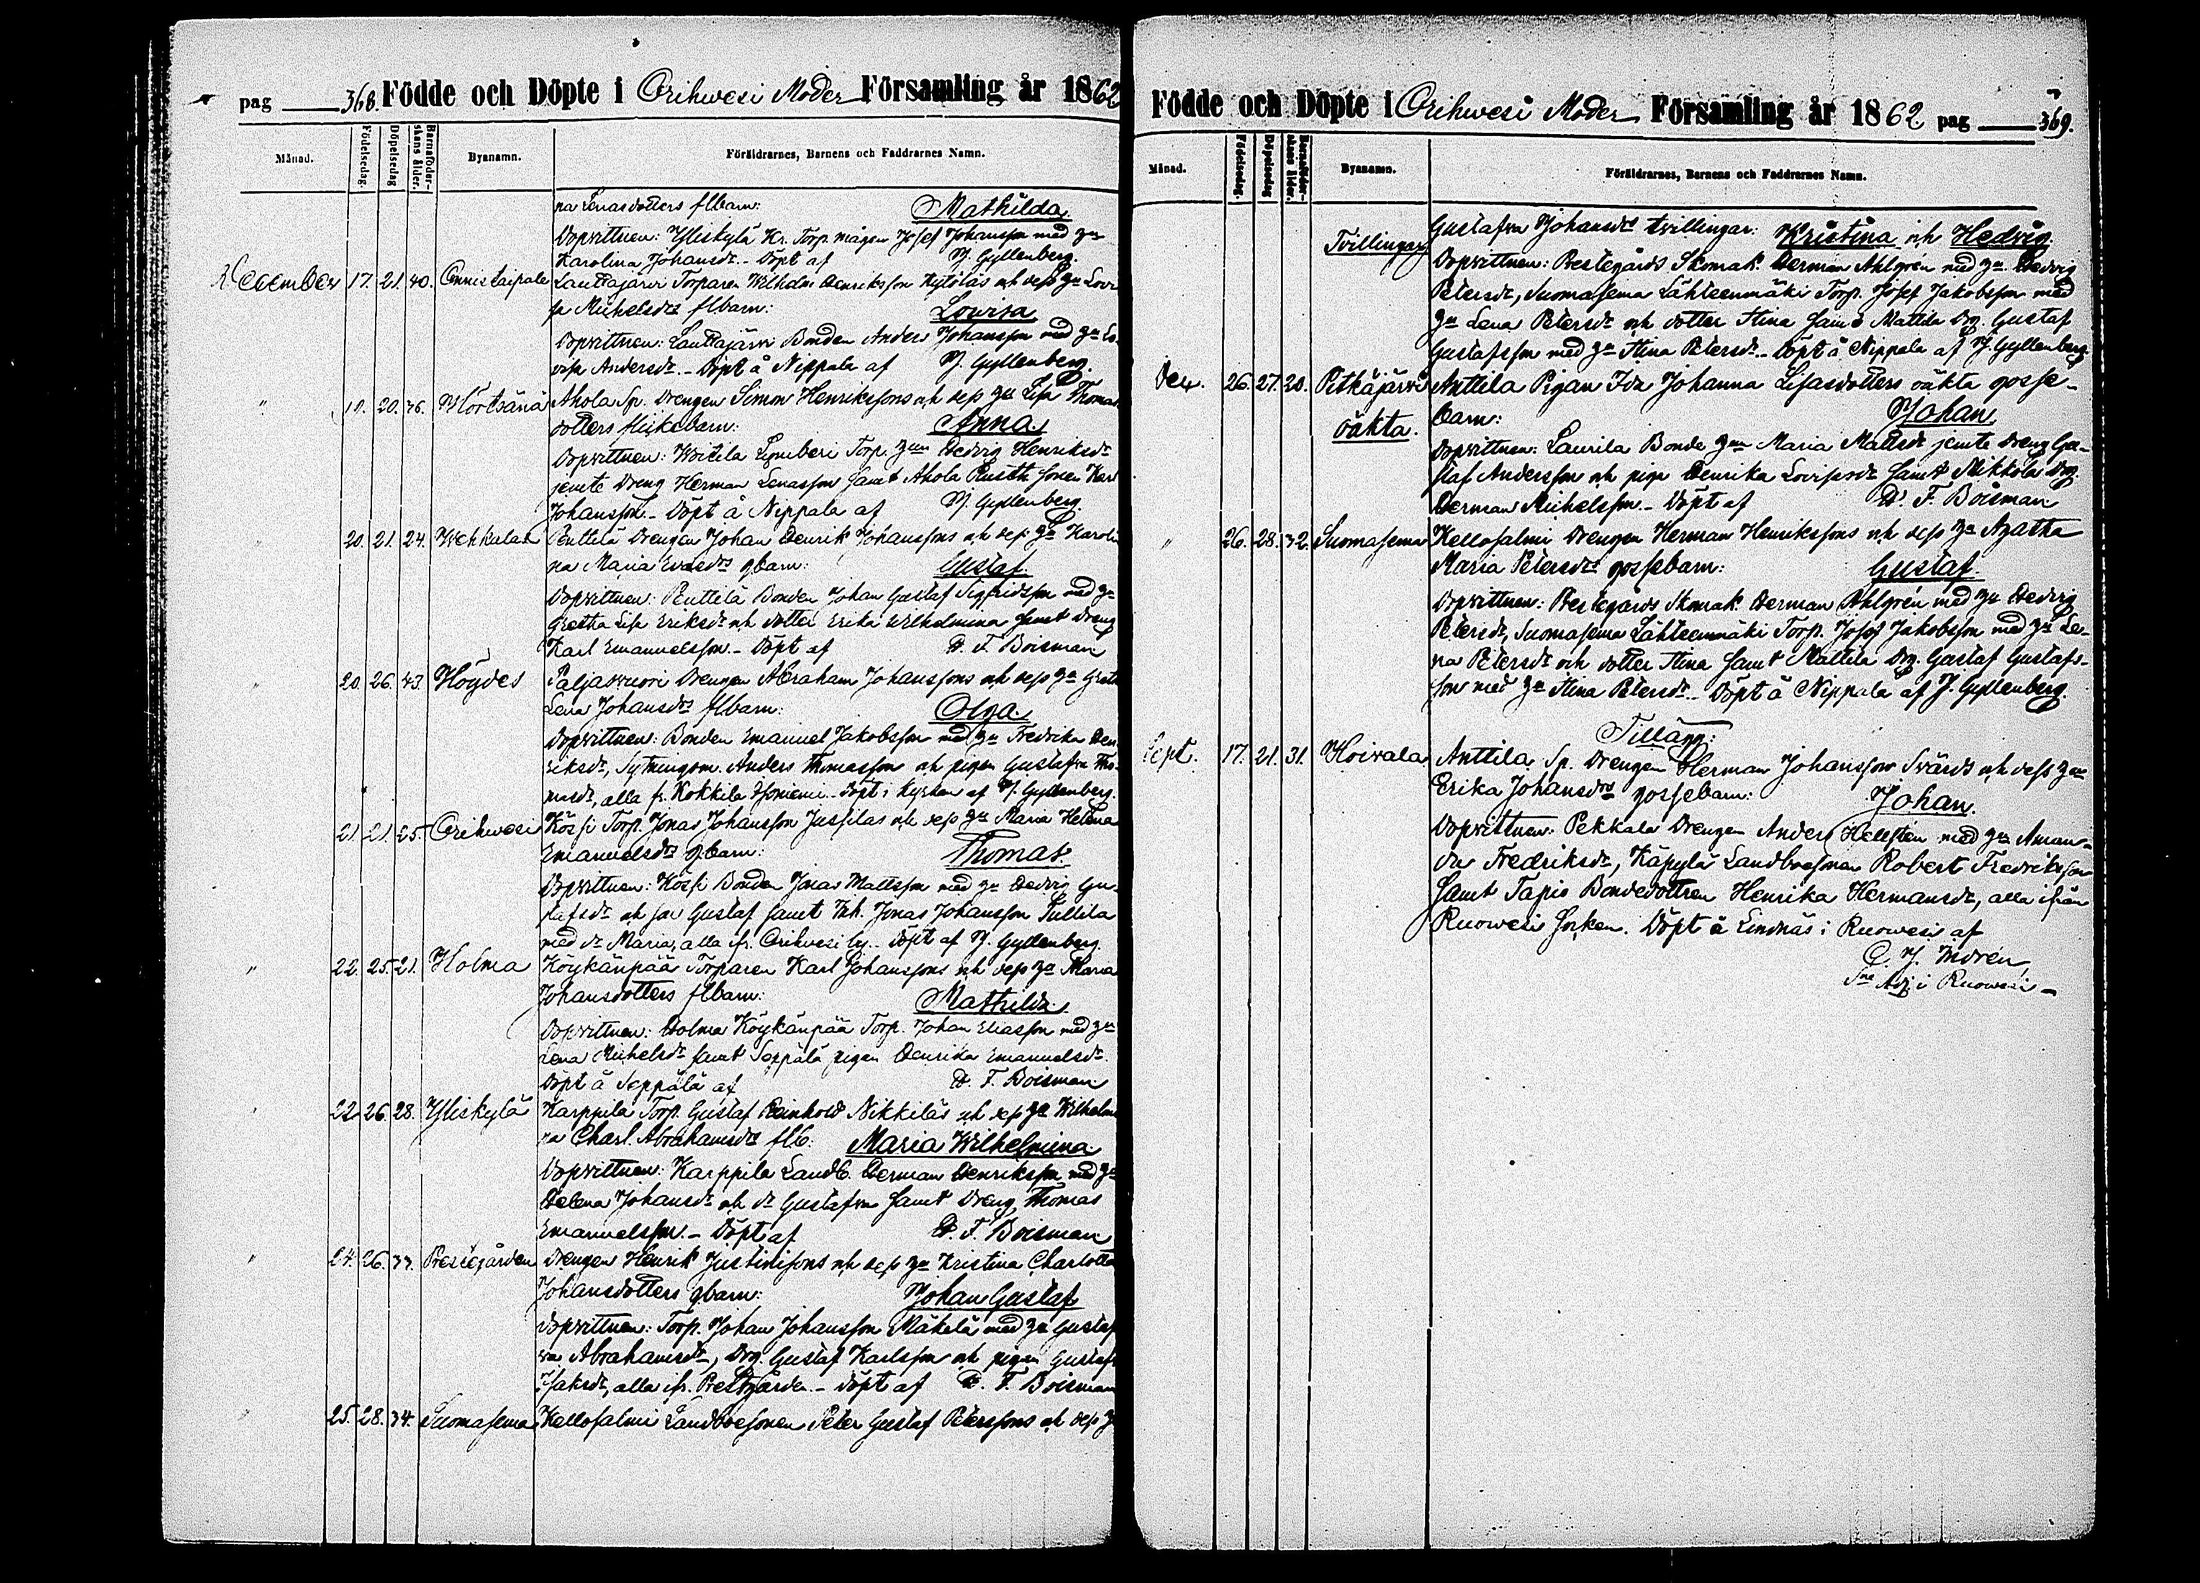 pag 368. Födde och Döpte i Orihwesi Moder Församling år 1862
Månad. Födelsedag. Döpelsedag Barnaföderskans ålder. Byanamn. Föräldrarnes, Barnens och Faddrarnes Namn.
na Lenasdotters flbarn: Mathilda
Dopvittnen: Yliskylä Kr. Torp. mågen Josef Johansson med hu
Karolina Johansdr. – Döpt af J. Gyllenberg.
December 17. 21. 40. Onnistaipale Lauttajärvi Torparen Wilhelm Henriksson Kytöläs och dess hu Lovi
sa Michelsdrs flbarn: Lovisa
Dopvittnen: Lauttajärvi Bonden Anders Johansson med hu Lo-
visa Andersdr. – Döpt å Nippala af J. Gyllenberg.
" 19. 20. 36. Hörtsänä Ahola Sp. Drengen Simon Henrikssons och dess hu Lisa Thomas
dotters flickebarn: Anna
Dopvittnen: Torp. hun Hedvig Henriksdr
jemte Dreng Herman Lenasson samt Ahola Rusth. sonen Karl
Johansson. – Döpt å Nippala af J. Gyllenberg.
" 20. 21. 24. Wehkalax Penttilä Drengen Johan Henrik Johanssons och dess hu Karoli
na Maria Evasdrs gbarn: Gustaf.
Dopvittnen: Penttilä Bonden Johan Gustaf Sigfridsson med hu
Gretha Lisa Eriksdr och dotter Erika Wilhelmina samt Dreng
Karl Emanuelsson. – Döpt af D. F. Boisman
" 20. 26. 43. Höydes Paljasvuori Drengen Abraham Johanssons och dess hu Greta
Lena Johansdrs flbarn: Olga.
Dopvittnen: Bonden Emanuel Jakobsson med hu Fredrika Hen
riksdr, Sytningsm. Anders Thomasson och pigan Gustafva Tho-
masdr, alla fr. Kokkila – Döpt i kyrkan af J. Gyllenberg.
" 21. 21. 25. Orihwesi Kössi Torp. Jonas Johansson Jussilas och dess hu Maria Helena
Emanuelsdrs gbarn: Thomas
Dopvittnen: Kössi Bonden Jonas Mattsson med hu Hedvig Gu-
stafsdr och son Gustaf samt Inh. Jonas Johansson Tullila
med dr Maria, alla ifr. Orihvesi by. – Döpt af J. Gyllenberg.
" 22. 25. 21. Holma Köykänpää Torparen Karl Johanssons och dess hu Maria
Johansdotters flbarn: Mathilda.
Dopvittnen: Holma Köykänpää Torp. Johan Eliasson med hu
Lena Michelsdr samt Seppälä pigan Henrika Emanuelsdr.
Döpt å Seppälä af D. F. Boisman
" 22. 26. 28. Yliskylä Karppila Torp. Gustaf Reinhold Nikkiläs och dess hu Wilhelmi
na Charl. Abrahamsdrs flb: Maria Wilhelmina
Dopvittnen: Karppila Landb. Herman Henriksson med hu
Helena Johansdr och dr Gustafva samt Dreng Thomas
Emanuelsson. – Döpt af D. F. Boisman
" 24. 26. 33. Prestegården Drengen Henrik Justinissons och dess hu Kristina Charlotta
Johansdotters gbarn: Johan Gustaf
Dopvittnen: Torp. Johan Johansson Mäkelä med hu Gustaf
va Abrahamsdr, Drg. Gustaf Karlsson och pigan Gustafa
Isaksdr, alla ifr. Prestgården. – Döpt af D. F. Boisman
25. 28. 34. Suomasema Kellosalmi Landboesonen Peter Gustaf Peterssons och dess h
Födde och Döpte i Orihwesi Moder Församling år 1862 pag 369.
Månad. Födelsedag. Döpelsedag Barnaföderskans ålder. Byanamn. Föräldrarnes, Barnens och Faddrarnes Namn.
Tvillingar Gustafva Johansdrs tvillingar: Kristina och Hedvig.
Dopvittnen: Prestegårds Skomak. Herman Ahlgrén med hu Hedvig
Petersdr, Suomasema Lähteenmäki Torp. Josef Jakobsson med
hu Lena Petersdr och dotter Stina samt Mattila Drg. Gustaf
Gustafsson med hu Stina Petersdr. – Döpt å Nippala af J. Gyllenberg
Dec. 26. 27. 20. Pitkäjärvi Anttila Pigan Ida Johanna Lisasdotters oäkta gosse-
oäkta. barn: Johan
Dopvittnen: Laurila Bonde hun Maria Mattsdr jemte Dreng Gu-
staf Andersson och piga Henrika Lovisasdr samt Mikkola Drg
Herman Michelsson. – Döpt af D. F. Boisman
" 26. 28. 32. Suomasema Kellosalmi Drengen Herman Henrikssons och dess hu Agatha
Maria Petersdrs gossebarn: Gustaf.
Dopvittnen: Prestegårds Skomak. Herman Ahlgrén med hu Hedvig
Petersdr, Suomasema Lähteenmäki Torp. Josef Jakobsson med hu Le-
na Petersdr och dotter Stina samt Mattila Drg. Gustaf Gustafs-
son med hu Stina Petersdr. – Döpt å Nippala af J. Gyllenberg.
Tillägg:
Sept. 17. 21. 31. Hoivala Anttila Sp. Drengen Herman Johansson Svärds och dess hu
Erika Johansdrs gossebarn: Johan.
Dopvittnen: Pekkala Drengen Anders Hellsten med hu Aman-
da Fredriksdr, Käpylä Landboesonen Robert Fredriksson
samt Tapio Bondedottren Henrika Hermansdr, alla ifrån
Ruowesi socken. Döpt å Lindnäs i Ruowesi af
C. J. Morén
Sne Adj. i Ruowesi –